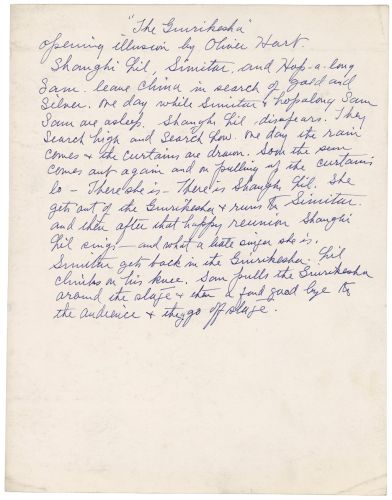 "The Ginrikesha"
opening illusion by Oliver Hart.
Shanghi Lil, Simitar, and Hop-a-long
Sam. leave China in search of gold and
Silver. One day while Simitar & hopalong Sam
Sam are asleep. Shanghi Lil disapears. They
Search high and search low. One day the rain
comes & the curtains are drawn. Soon the sun
comes out again and on pulling up the curtains
lo - There she is - There is Shanghi Lil. She
gets out of the Ginrikesha & runs to Simitar.
and then after that happy reunion Shanghi
Lil sings - and what a singer she is.
Simitar gets back in the Ginrikesha. Lil
climbs on his knee. Sam pulls the Ginrikesha
around the stage & then a fond good bye to
the audience & they go off stage.